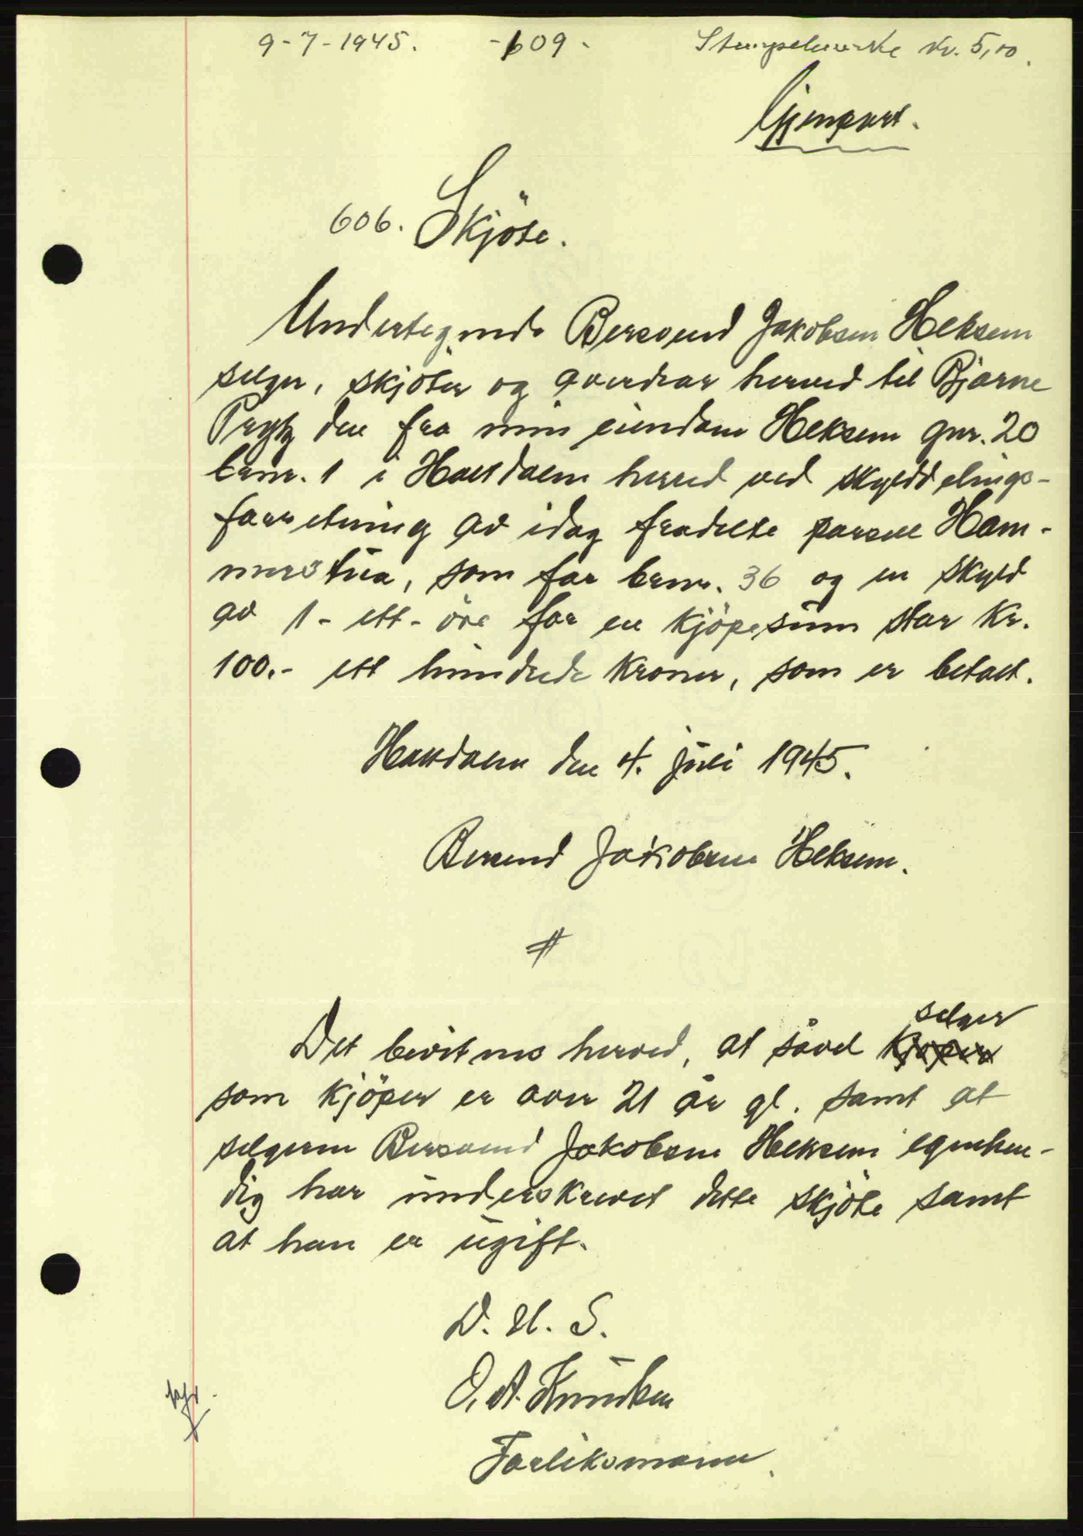 9-7-1945. -609- Stempelmerke kr. 5,00.
Gjenpart.
606. Skjöte.
Undertegnede Bersvend Jakobsen Heksem
selger, skjöter og overdrar herved til Bjarne
Prytz den fra min eiendom Heksem gnr. 20
brnr. 1 i Haltdalen herred ved skylddelings-
forretning av idag fradelte parsell Ham-
merstua, som får brnr. 36 og en skyld
av 1- ett- öre for en kjöpesum stor kr.
100.- ett hundrede kroner, som er betalt.
Haltdalen den 4. juli 1945.
Bersvend Jakobsen Heksem.
#
selger
Det bevitnes herved, at såvel kjöper
som kjöper er over 21 år gl. samt at
selgeren Bersvend Jakobsen Heksem egenhen-
dig har underskrevet dette skjöte samt
at han er ugift.
D. U. S.
O. A. Knudsen
Forliksmann.